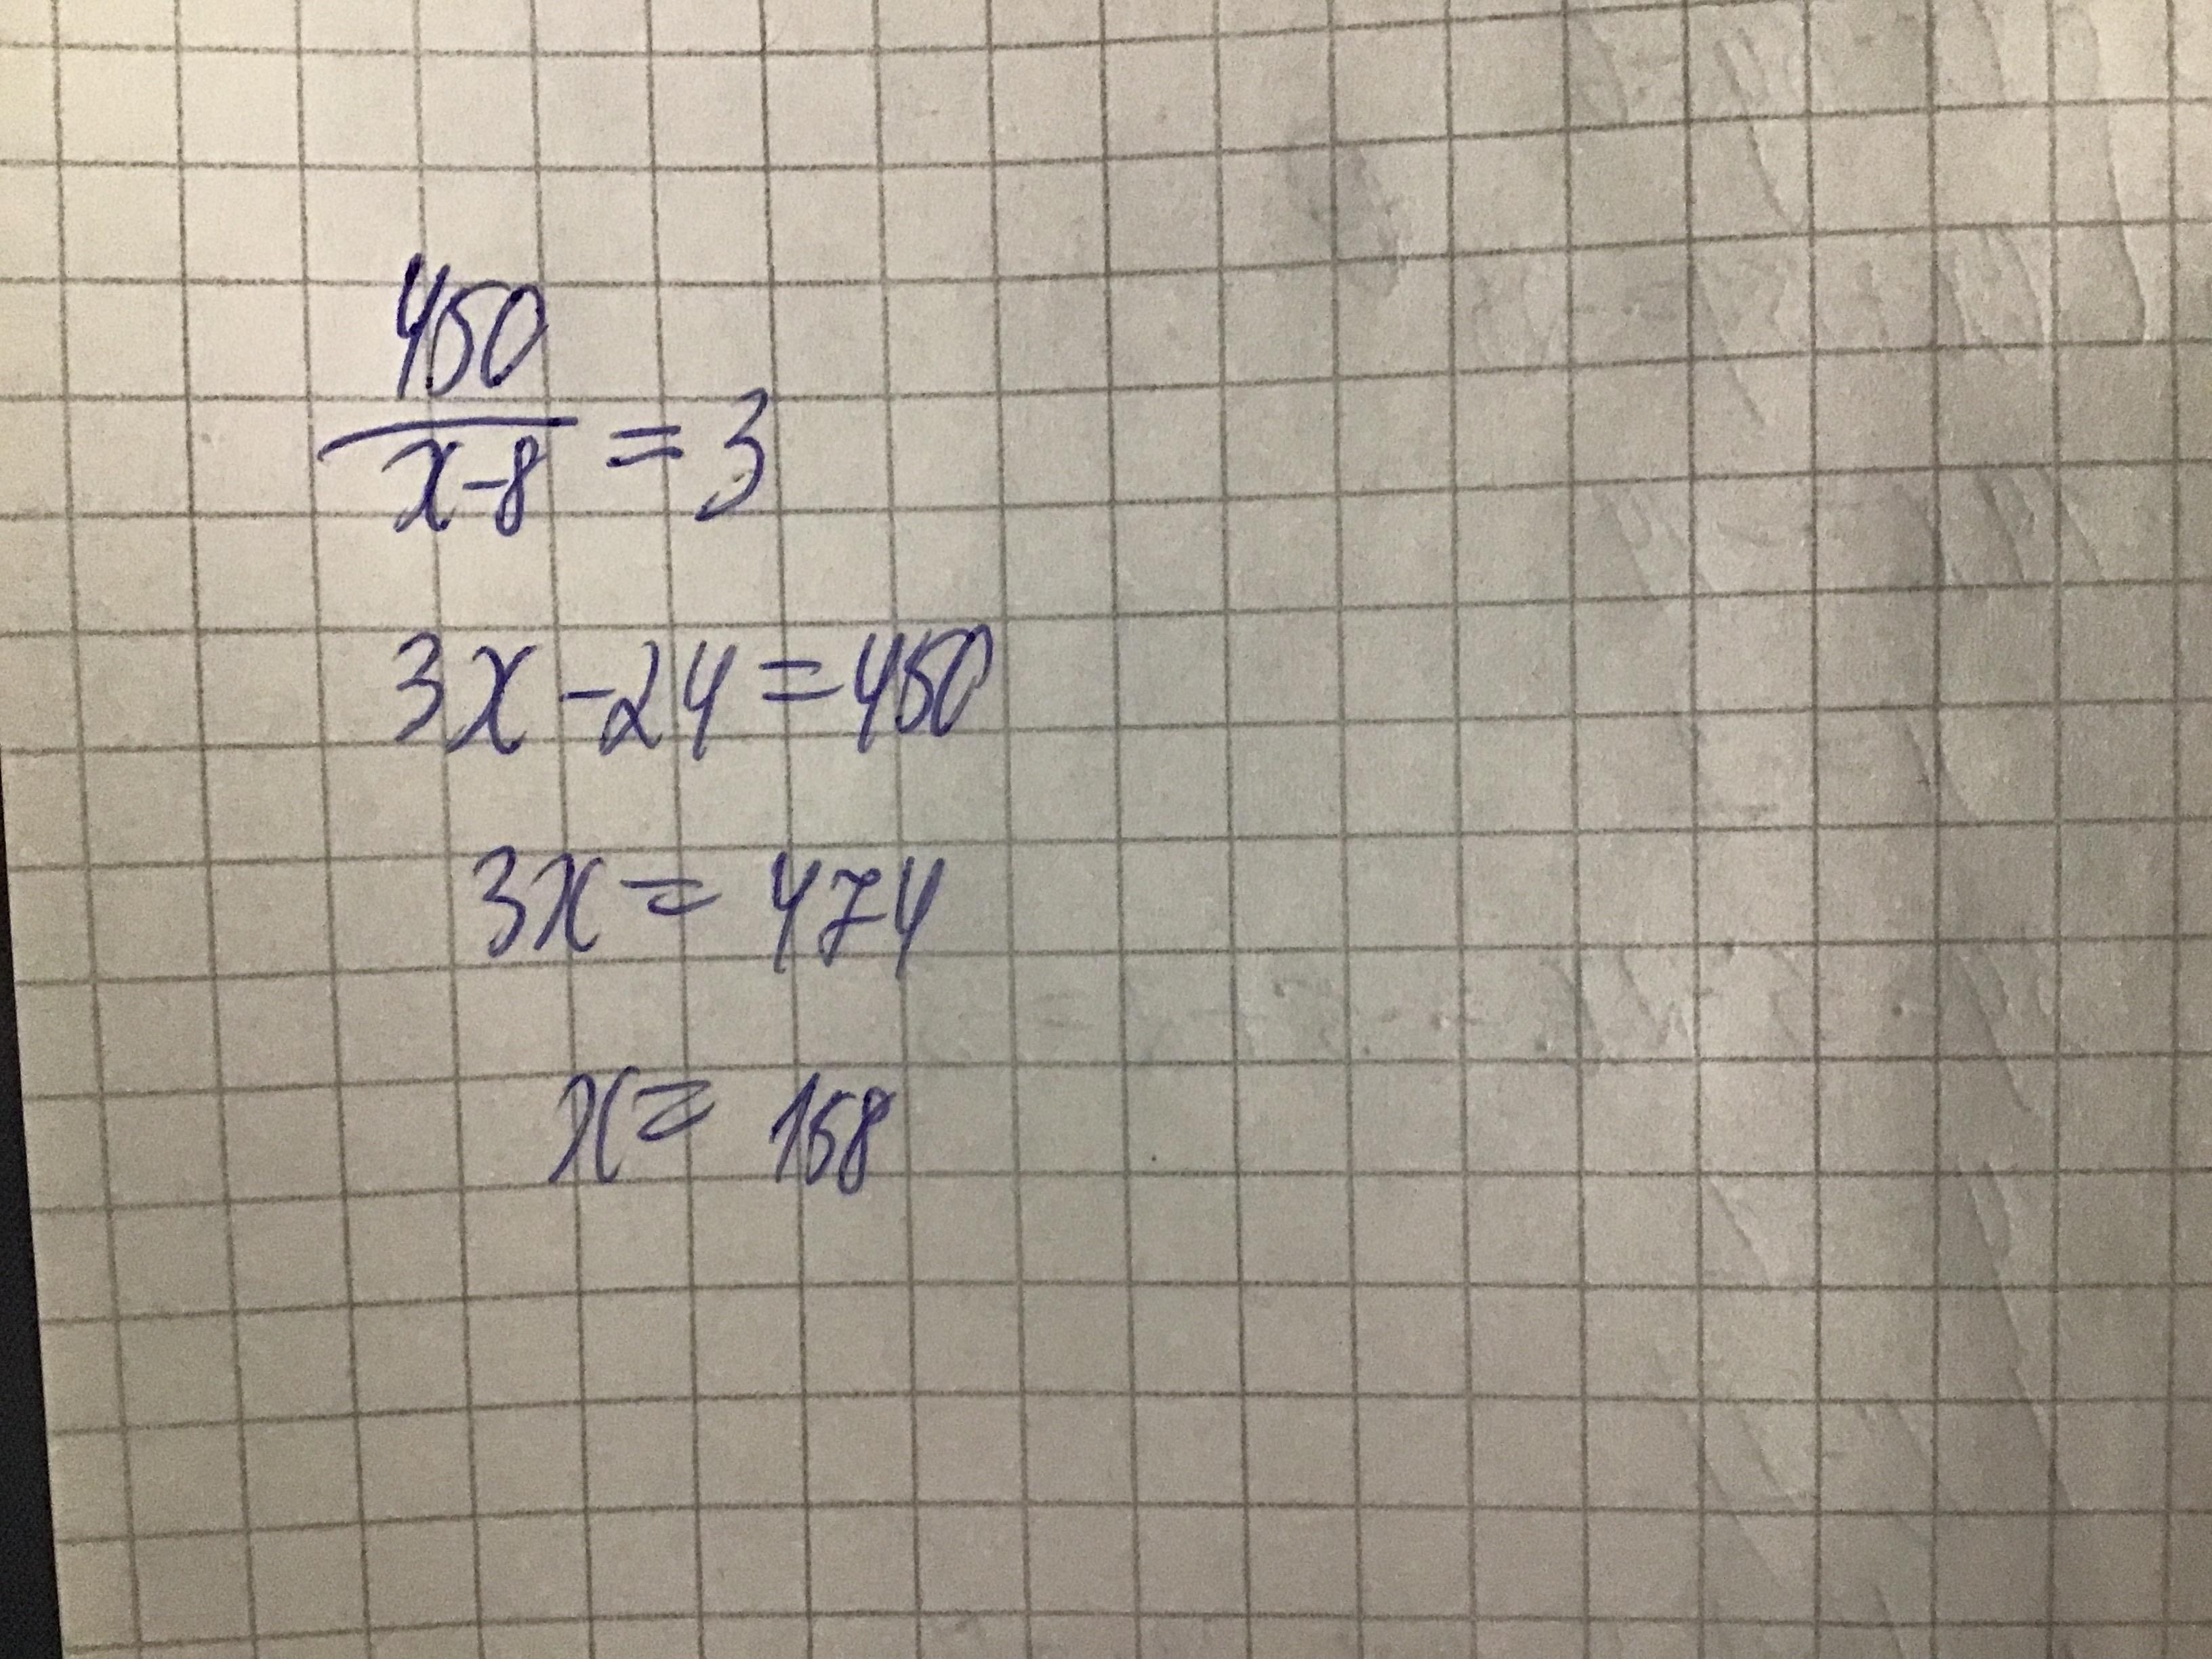 450
x-8 = 3
3x-24=450
3x= 474
x= 158